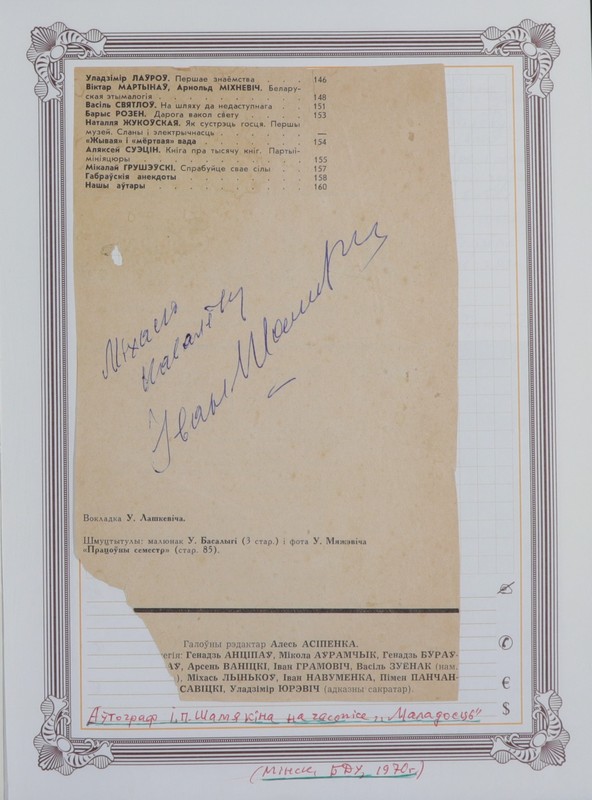 Уладзімір ЛАЎРОЎ. Першае знаёмства . . . . 146
Віктар МАРТЫНАЎ, Арнольд МІХНЕВІЧ. Белару-
ская этымалогія . . . . . . . . 148
Васіль СВЯТЛОЎ. На шляху да недаступнага . . 151
Барыс РОЗЕН. Дарога вакол свету . . . . 153
Наталля ЖУКОЎСКАЯ. Як сустрэць госця. Першы
музей. Сланы і электрычнасць . . . . . —
«Жывая» і «мёртвая» вада . . . . . . 154
Аляксей СУЭЦІН. Кніга пра тысячу кніг. Партыі-
мініяцюры . . . . . . . . . . 155
Мікалай ГРУШЭЎСКІ. Спрабуйце свае сілы . . 157
Габраўскія анекдоты . . . . . . . 158
Нашы аўтары . . . . . . . . . 160
Міхасю
Іван Шамякін
Вокладка У. Лашкевіча.
Шмуцтытулы: малюнак У. Басалыгі (3 стар.) і фота У. Мяжэвіча
«Працоўны семестр» (стар. 85).
Галоўны рэдактар Алесь АСІПЕНКА.
егія: Генадзь АНЦІПАЎ, Мікола АЎРАМЧЫК, Генадзь БУРАЎ-
АЎ, Арсень ВАНІЦКІ, Іван ГРАМОВІЧ, Васіль ЗУЕНАК (нам.
), Міхась ЛЫНЬКОЎ, Іван НАВУМЕНКА, Пімен ПАНЧАН-
САВІЦКІ, Уладзімір ЮРЭВІЧ (адказны сакратар).
Аўтограф І.П. Шамякіна на часопісе „Маладосць"
(Мінск, БДУ, 1970г.)
€
$